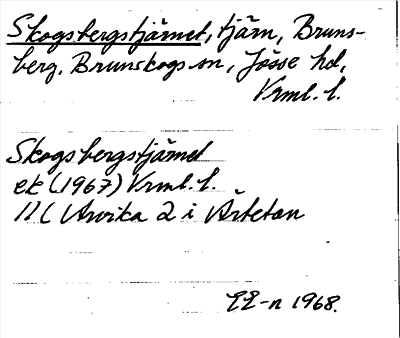 Skogsbergstjärnet, tjärn, Bruns-
berg, Brunskogs sn, Jösse hd,
Vrml. l.
Skogsbergstjärnet
ek (1967) Vrml. l.
11C Arvika 2 i Årtetan
1968.